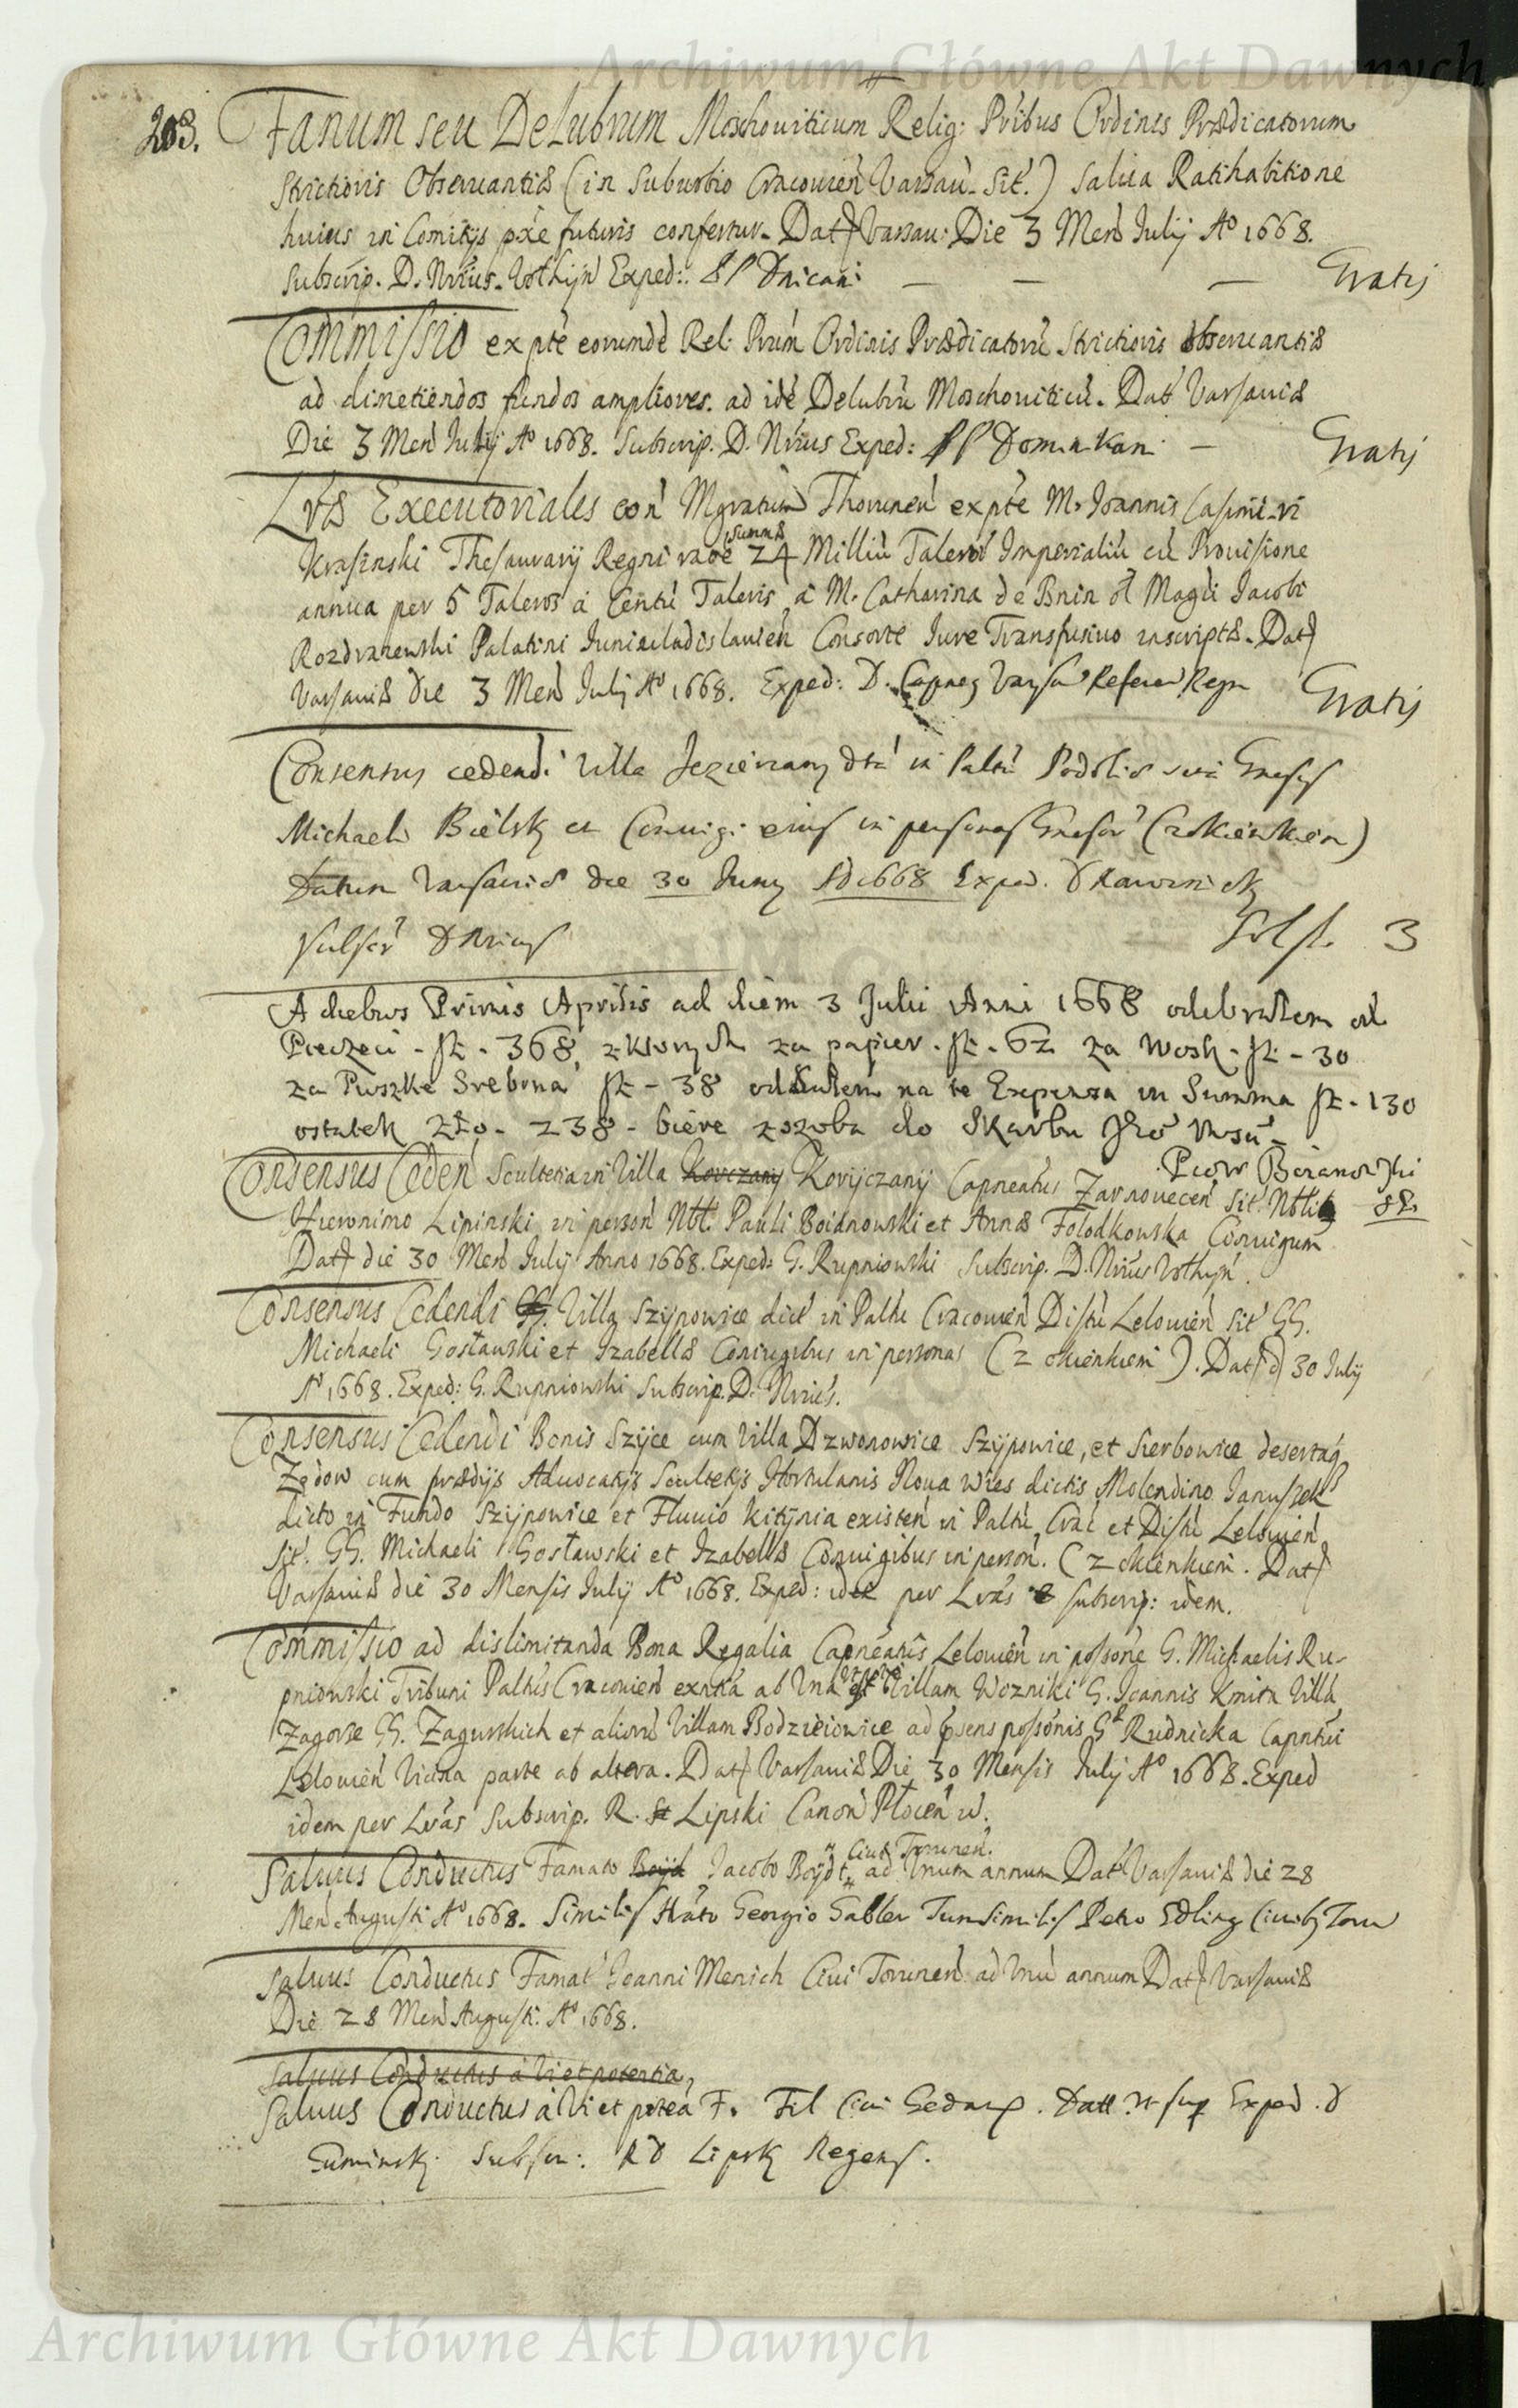 Archiwum Główne Akt Dawnych
203. Fanum seu Delubrum Moschoviticum Relig: Pribus Ordinis Prædicatorum
Strictioris Obseruantiæ (in Suburbio Cracouien Varsau. Sit.) Salua Ratihabitione
huius in Comitijs pxe futuris confertur. Dat Varsau: Die 3 Men Julij Ao 1668.
Subscrip. D. Nrius. Exped: PP Dnicani — — — Gratis
Commissio ex pte eorunde Rel: Prum Ordinis Prædicatoru Strictioris obseruantiæ
ad dimetiendos fundos ampliores. ad ide Delubru Moschouiticu. Dat Varsauiæ
Die 3 Men Julij Ao 1668. Subscrip. D. Nrius Exped: PP Dominikani — Gratis
Lræ Executoriales con Mgratum Thorunen ex pte M. Joannis Casimi-ri
Krasinski Thesaurarij Regni raoe summæ 24 Milliu Taleroru Imperialiu cu Prouisione
annua per 5 Taleros a Centu Taleris, a M. Catharina de Bnin ol Magdi Jacobi
Rozdrazewski Palatini Juniuladislauien Consorte Jure Transfusiuo inscriptæ. Dat
Varsauiæ die 3 Men Julij Ao 1668. Exped: D. Capneg Varsa Referen Regn Gratis
Consensus cedendi Villa Jezierzany dta in Paltu Podoliæ
Michaeli Bielsky et Coniugi eius in personas (z okienkiem)
Datum Varsauiæ die 30 Juny Ao 1668 Exped. D
Subscr D Nrius 3
A diebus Primis Aprilis ad diem 3 Julii Anni 1668 odebrałem od
Pieczęci - fl - 368, z ktorych za papier - fl - 62 za wosk - fl - 30
za Puszke Srebrna fl - 38 oddałem na te Expensa in Summa fl - 130
ostatek zło - 238 - biere zsoba do Skarbu
Piotr
Consensus Ceden Scultetia in Villa Korczany Koryczanij Capneatus Zarnouecen Sit Nbli
Hieronimo Lipinski in person Nbl. Pauli Boidnowski et Annæ Folodkowska Coniugum
Dat die 30 Men Julij Anno 1668. Exped: G. Rupniowski Subscrip. D. Nrius
Consensus Cedendi Villa Szijpowice dict in Paltu Cracouien Distu Lelouien Sit GG.
Michaeli Gosławski et Izabellæ Coniugibus in personas (z okienkiem). Dat d 30 July
Ao 1668. Exped: G. Rupniowski Subscrip. D. Nrius.
Consensus Cedendi Bonis Szijce cum Villa Dzwonowice Szijpowice, et Sierbowice desertaq
Zędow cum prædijs Aduocatijs Scultetijs Hortulanis Noua Wies dictis Molendino Januszek
dicto in Fundo Szijpowice et Fluuio Kitijnia existen in Paltu Crac et Distu Lelouien
Sit. GG. Michaeli Gosławski et Izabellæ Coniugibus in person. (z okienkiem. Dat
Varsauiæ die 30 Mensis Julij Ao 1668. Exped: idem per Lras subscrip: idem.
Commissio ad dislimitanda Bona Regalia Capneatus Lelouien in possone G. Michaelis Ru-
pniowski Tribuni Paltus Cracouien ab Una Villam Wozniki G. Joannis Kmita Villa
Zagorze GG. Zagurskich et alioru Villam Bodzieiowice ad possonis Rudnicka Capntui
Lelouien Vicina parte ab altera. Dat Varsauiæ Die 30 Mensis Julij Ao 1668. Exped
idem per Lras Subscrip. R. Lipski Canon Płocen
Saluus Conductus Famato Boijd Jacobo Boijdt ciui Torunen. ad Unum annum Dat Varsauiæ die 28
Men Augusti Ao 1668. Similis Georgio Gabler Similis Petro Edling
Saluus Conductus Famat Joanni Menich Ciui Torunen ad Unu annum Dat Varsauiæ
Die 28 Men Augusti Ao 1668.
Saluus Conductus a Vi et potentia,
Saluus Conductus a Vi et potea F. Fil Ciui Gedan. Datt ut sup Exped. D
Guminsky Subscr: R D Lipsky Regens.
Archiwum Główne Akt Dawnych